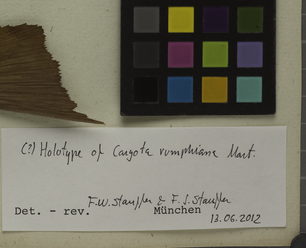 (?) Holotype of Caryota rumphiana Mart.
F.W. Stauffer & F. J. Stauffer
Det. - rev. München
13.06.2012